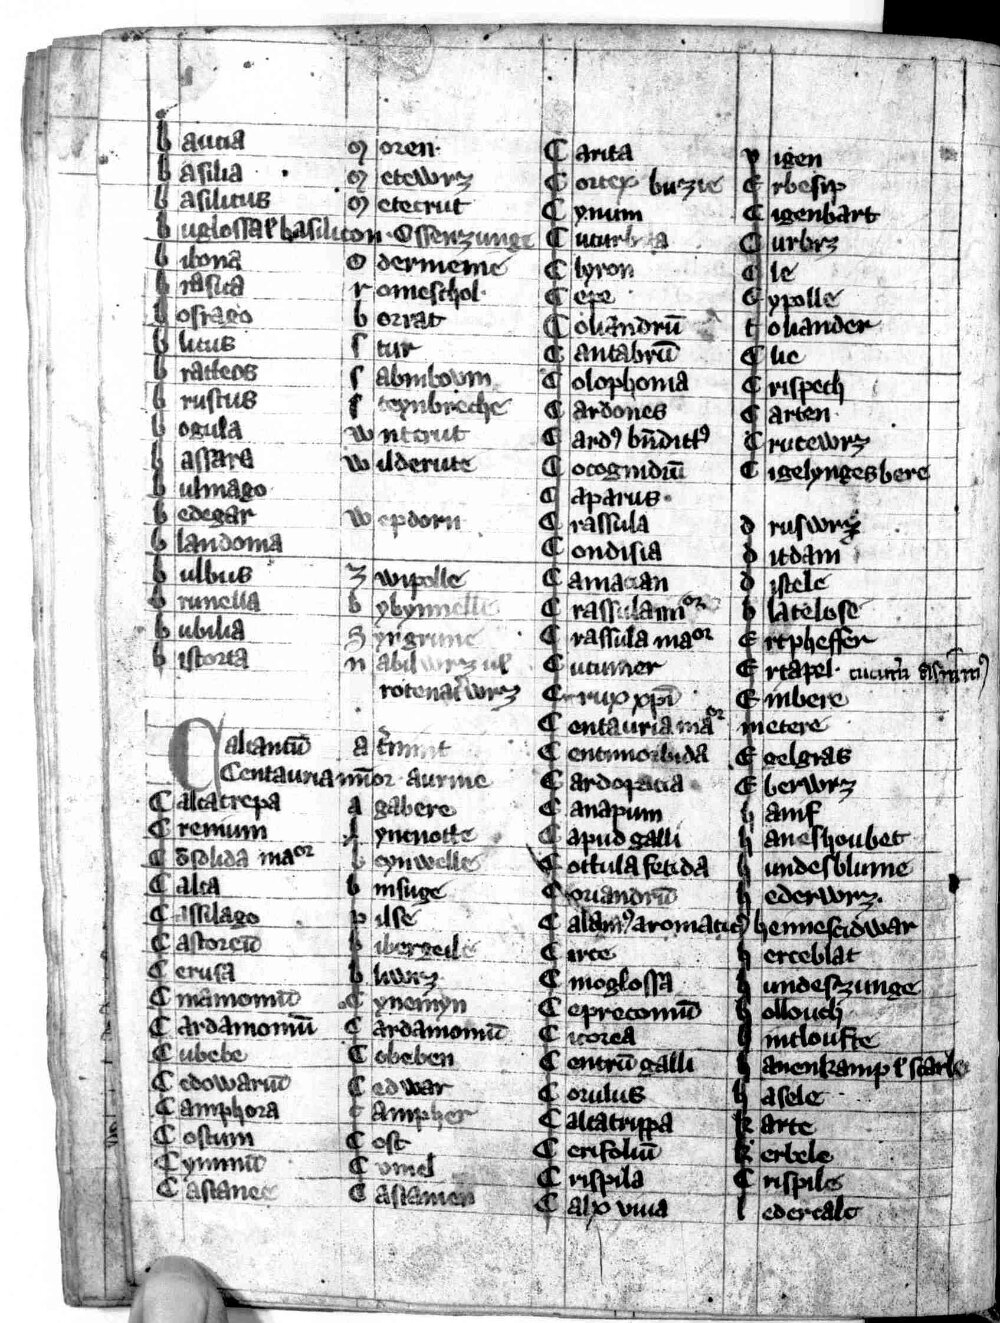 baucia moren
basilia metewrz
basilicus metecrut
buglossa ł basilicon Ossenzunge
ibona odermeine
brasica romeschol
bosrago borrat
blicus stur
bratteos sabinboum
bruscus steynbreche
bogula wntcrut
bassara wilderute
bulmago
bedegar wepdorn
blandonia
bulbus zwipolle
brunella
bubilia
bistorta nabilwrz ul
rotenatwrz
Calcantū atrimint
Centauria minor aurine
Calcatrepa agabere
Cremium
Cōsolida maor cynwelle
Calta binsuge
Cissilago pilse
Castoreū bibergeile
Cerusa bliwiz
Cinamomū Cynemyn
Cardamomū Cardamomū
Cubebe Cobeben
Cedowarū Cedwar
Camphora campher
Costum Cost
Cyminū Cumel
Castanee Castanien
Carita vigen
Cortex burzie Erbesip
Cynum Cigenbart
Cucurbita Curbrz
Clyron Cle
Cepe Cypolle
Coliandrū toliander
Cantabrū Clie
Colophonia Crispech
Cardones Carten
Card9 bn̄dict9 Crucewrz
Cocognidiū Cigelyngesbere
Caparus
Crassula druswrz
Condisia ditdam
Camacian distele
Crassula mior blatelose
Crassula maor Ertpheffer
Cucumer Ertapel
Crux xpi Einbere
Centauria maor metere
Centimorbida Egelgras
Cardopacia Eberwrz
Canapum hamf
Capud galli haneshoubet
Cottula fetida hundesblume
Coriandrū hederwrz
Calam9 aromatic9 hennescidwar
Circe herceblat
Cinoglossa hundeszunge
Ceprecomū hollouch
Cicorea hintloufte
Centrū galli hanenkamp ł scarle
Corulus hasele
Calcatrippa karte
Cerifoliū kerbele
Crispila Crispile
Calx viua ledercalc